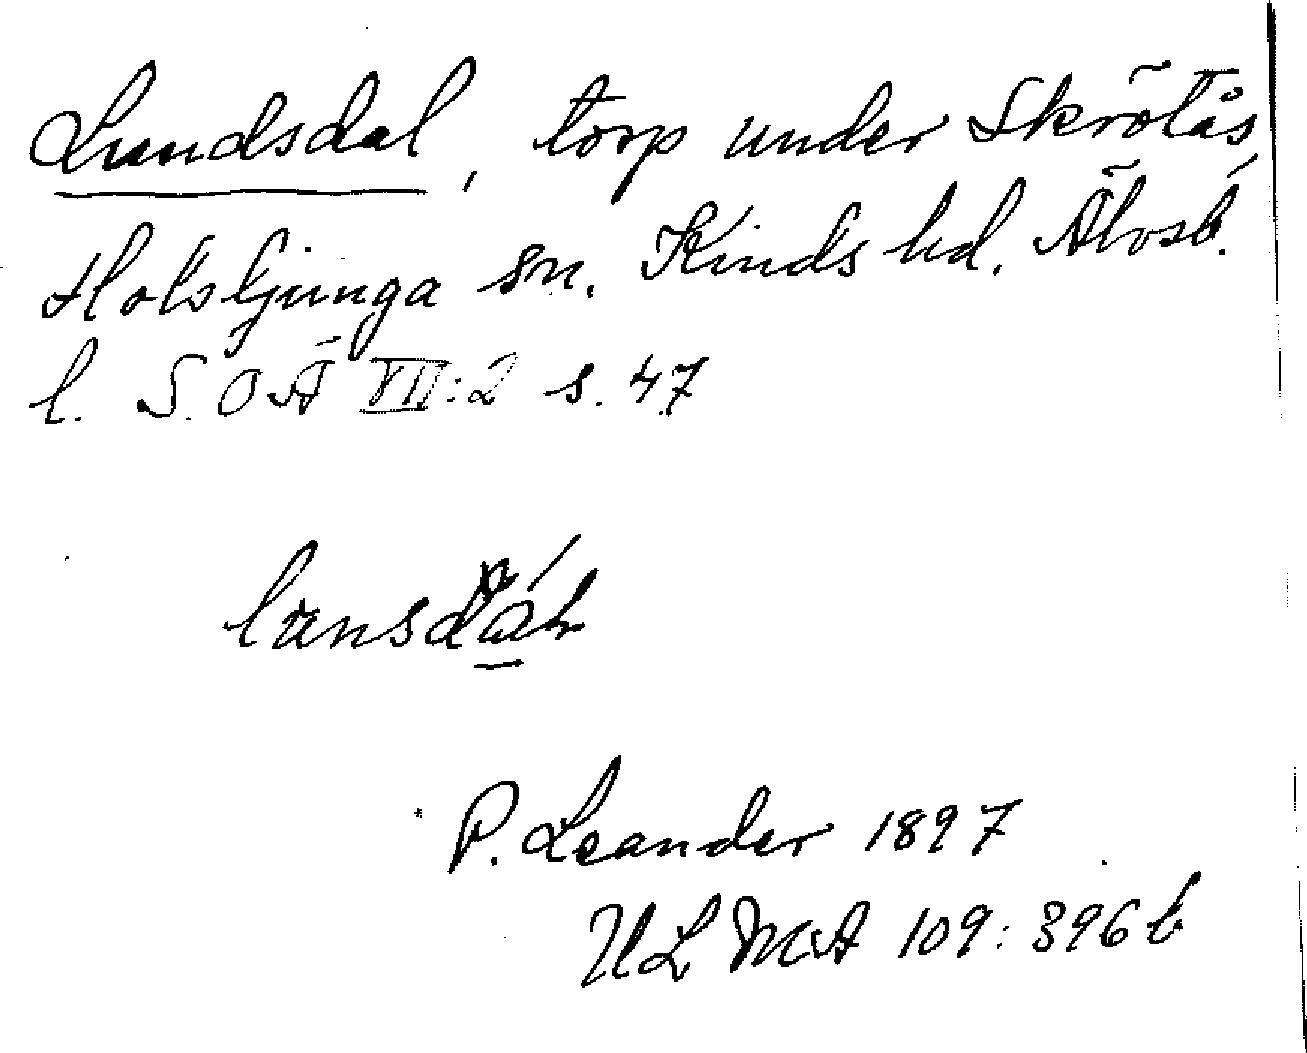 Lundsdal, torp under Skrötås
Holsljunga sn. Kinds hd. Älvsb.
l. S.O.Ä VII:2 s. 47
P. Leander 1897
ULMA 109:396b